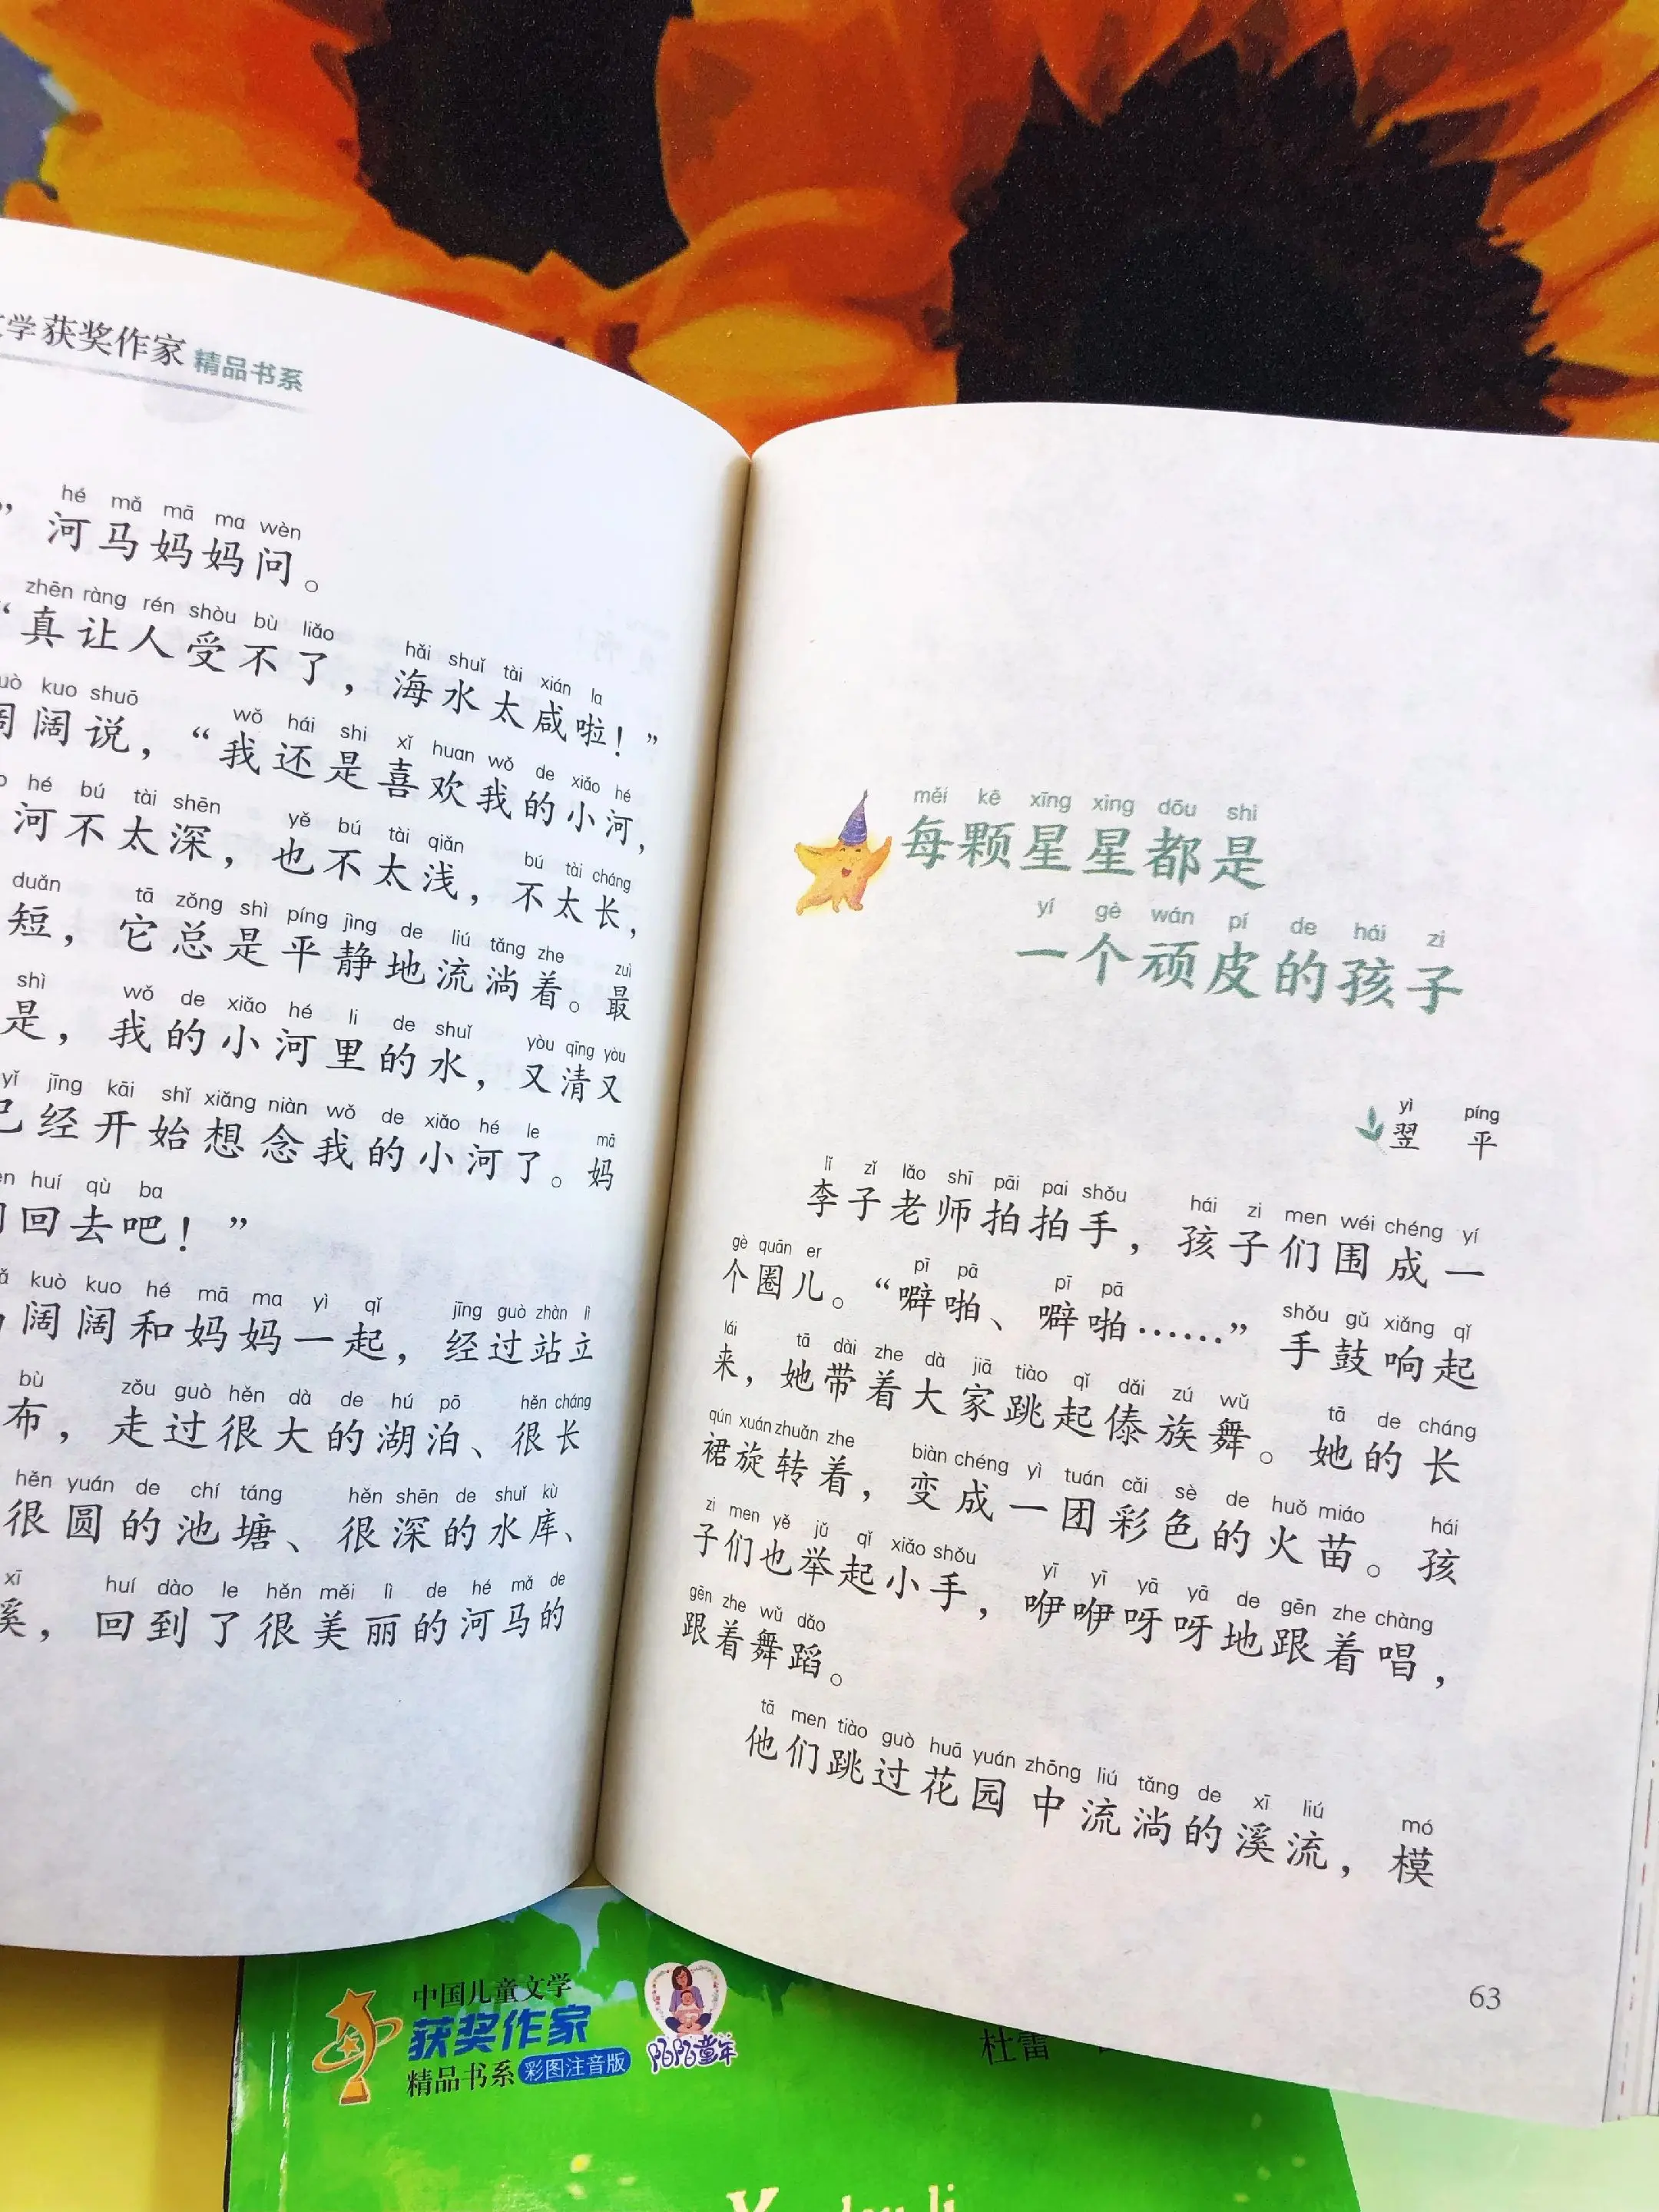 学获奖作家 精品书系
hé mǎ mā ma wèn
”河马妈妈问。
zhēn ràng rén shòu bù liǎo hǎi shuǐ tài xián la
“真让人受不了，海水太咸啦！”
kuo shuō wǒ hái shi xǐ huan wǒ de xiǎo hé
阔说，“我还是喜欢我的小河，
hé bú tài shēn yě bú tài qiǎn bú tài cháng
河不太深，也不太浅，不太长，
duǎn tā zǒng shì píng jìng de liú tǎng zhe zuì
短，它总是平静地流淌着。最
shì wǒ de xiǎo hé li de shuǐ yòu qīng yòu
是，我的小河里的水，又清又
yǐ jīng kāi shǐ xiǎng niàn wǒ de xiǎo hé le mā
已经开始想念我的小河了。妈
huí qù ba
回去吧！”
kuò kuo hé mā ma yì qǐ jīng guò zhàn lì
阔阔和妈妈一起，经过站立
bù zǒu guò hěn dà de hú pō hěn cháng
布，走过很大的湖泊、很长
hěn yuán de chí táng hěn shēn de shuǐ kù
很圆的池塘、很深的水库、
xī huí dào le hěn měi lì de hé mǎ de
溪，回到了很美丽的河马的
měi kē xīng xing dōu shì
每颗星星都是
yí gè wán pí de hái zi
一个顽皮的孩子
yì píng
翌 平
lǐ zǐ lǎo shī pāi pai shǒu hái zi men wéi chéng yí
李子老师拍拍手，孩子们围成一
gè quān er pī pā pī pā shǒu gǔ xiǎng qǐ
个圈儿。“噼啪、噼啪……”手鼓响起
lái tā dài zhe dà jiā tiào qǐ dǎi zú wǔ tā de cháng
来，她带着大家跳起傣族舞。她的长
qún xuán zhuǎn zhe biàn chéng yì tuán cǎi sè de huǒ miáo hái
裙旋转着，变成一团彩色的火苗。孩
zi men yě jǔ qǐ xiǎo shǒu yī yī yā yā de gēn zhe chàng
子们也举起小手，咿咿呀呀地跟着唱，
gēn zhe wǔ dǎo
跟着舞蹈。
tā men tiào guò huā yuán zhōng liú tǎng de xī liú mó
他们跳过花园中流淌的溪流，模
63
中国儿童文学
获奖作家
精品书系 彩图注音版
童年
杜雷